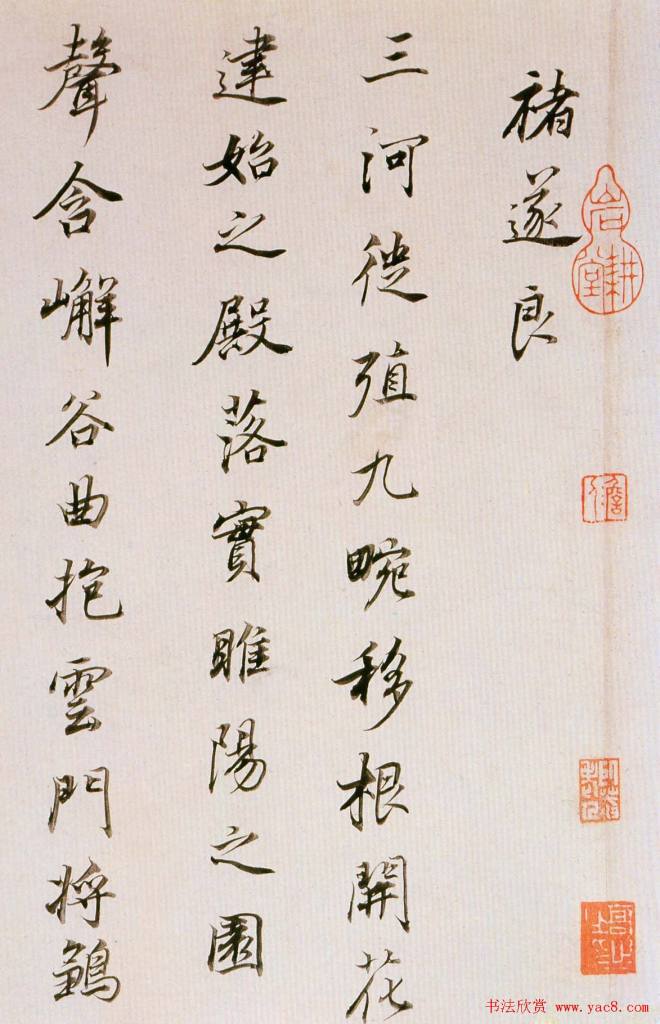 褚遂良
三河徙殖九畹移根開花
建始之殿落實睢陽之園
聲含嶰谷曲抱雲門將鶵
书法欣赏 www.yac8.com